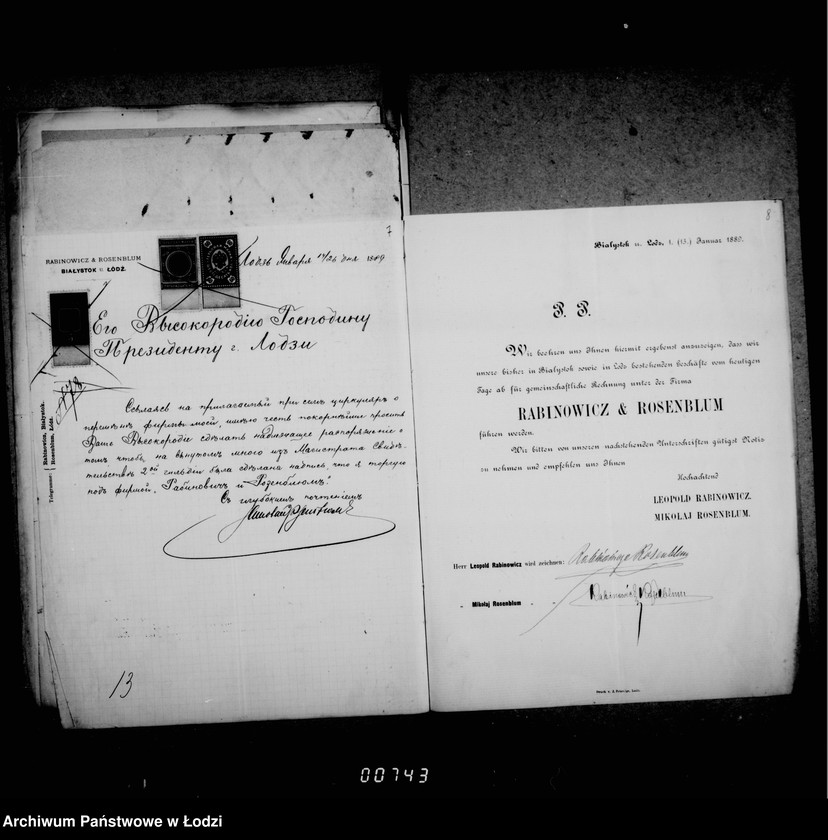 7
RABINOWICZ & ROSENBLUM
BIAŁYSTOK u. ŁÓDŹ.
Лодзь Января 14/26 дня 1889
Его Высокородію Господину
Президенту г. Лодзи
Telegramme: Rabinowicz, Białystok.
Rosenblum, Łódź.
Ссылаясь на прилагаемый при семъ циркуляръ о
перемѣнѣ фирмы моей, имѣю честь покорнѣйше просить
Ваше Высокородіе сдѣлать надлежащее распоряженіе о
томъ чтобъ, на вынутомъ мною изъ Магистрата Свидѣ-
тельствѣ 2ой гильдіи была сдѣлана надпись, что я торгую
подъ фирмой „Рабиновичъ и Розенблюмъ".
Съ глубокимъ почтеніемъ
13
8
Białystok u. Lodz, 1. (13.) Januar 1889.
P. P.
Wir beehren uns Ihnen hiermit ergebenst anzuzeigen, dass wir
unsere bisher in Białystok sowie in Lodz bestehenden Geschäfte vom heutigen
Tage ab für gemeinschaftliche Rechnung unter der Firma
RABINOWICZ & ROSENBLUM
führen werden.
Wir bitten von unseren nachstehenden Unterschriften gütigst Notiz
zu nehmen und empfehlen uns Ihnen
Hochachtend
LEOPOLD RABINOWICZ.
MIKOŁAJ ROSENBLUM.
Herr Leopold Rabinowicz wird zeichnen: Rabinowicz & Rosenblum
„ Mikołaj Rosenblum „ „ Rabinowicz & Rosenblum
00743
Archiwum Państwowe w Łodzi